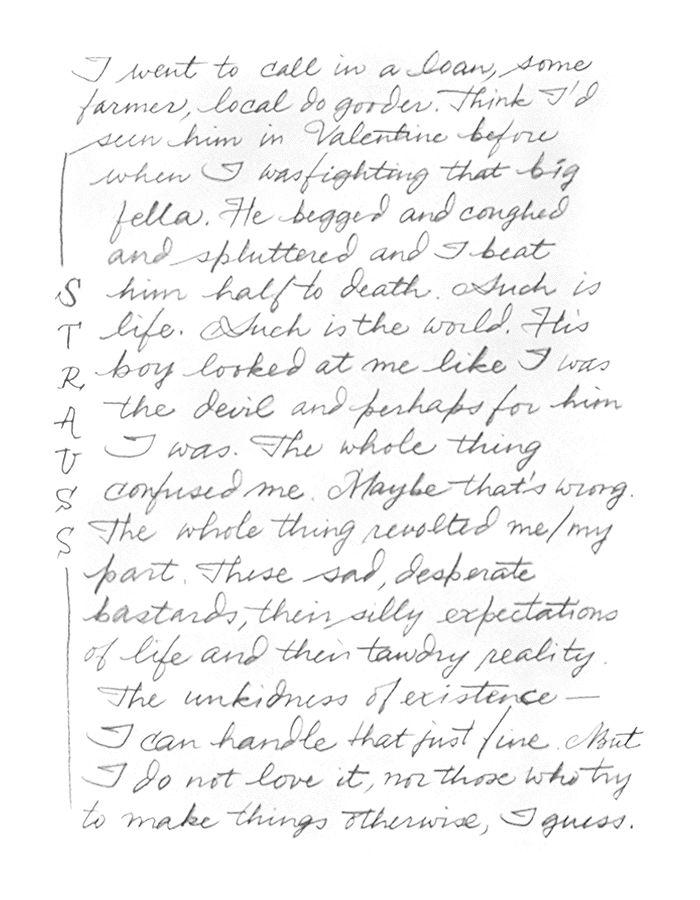 I went to call in a loan, some
farmer, local do gooder. Think I'd
seen him in Valentine before
when I was fighting that big
fella. He begged and coughed
and spluttered and I beat
him half to death. Such is
life. Such is the world. His
boy looked at me like I was
the devil and perhaps for him
I was. The whole thing
confused me. Maybe that's wrong.
The whole thing revolted me/my
part. These sad, desperate
bastards, their silly expectations
of life and their tawdry reality.
The unkidness of existence —
I can handle that just fine. But
I do not love it, nor those who try
to make things otherwise, I guess.
STRAUSS